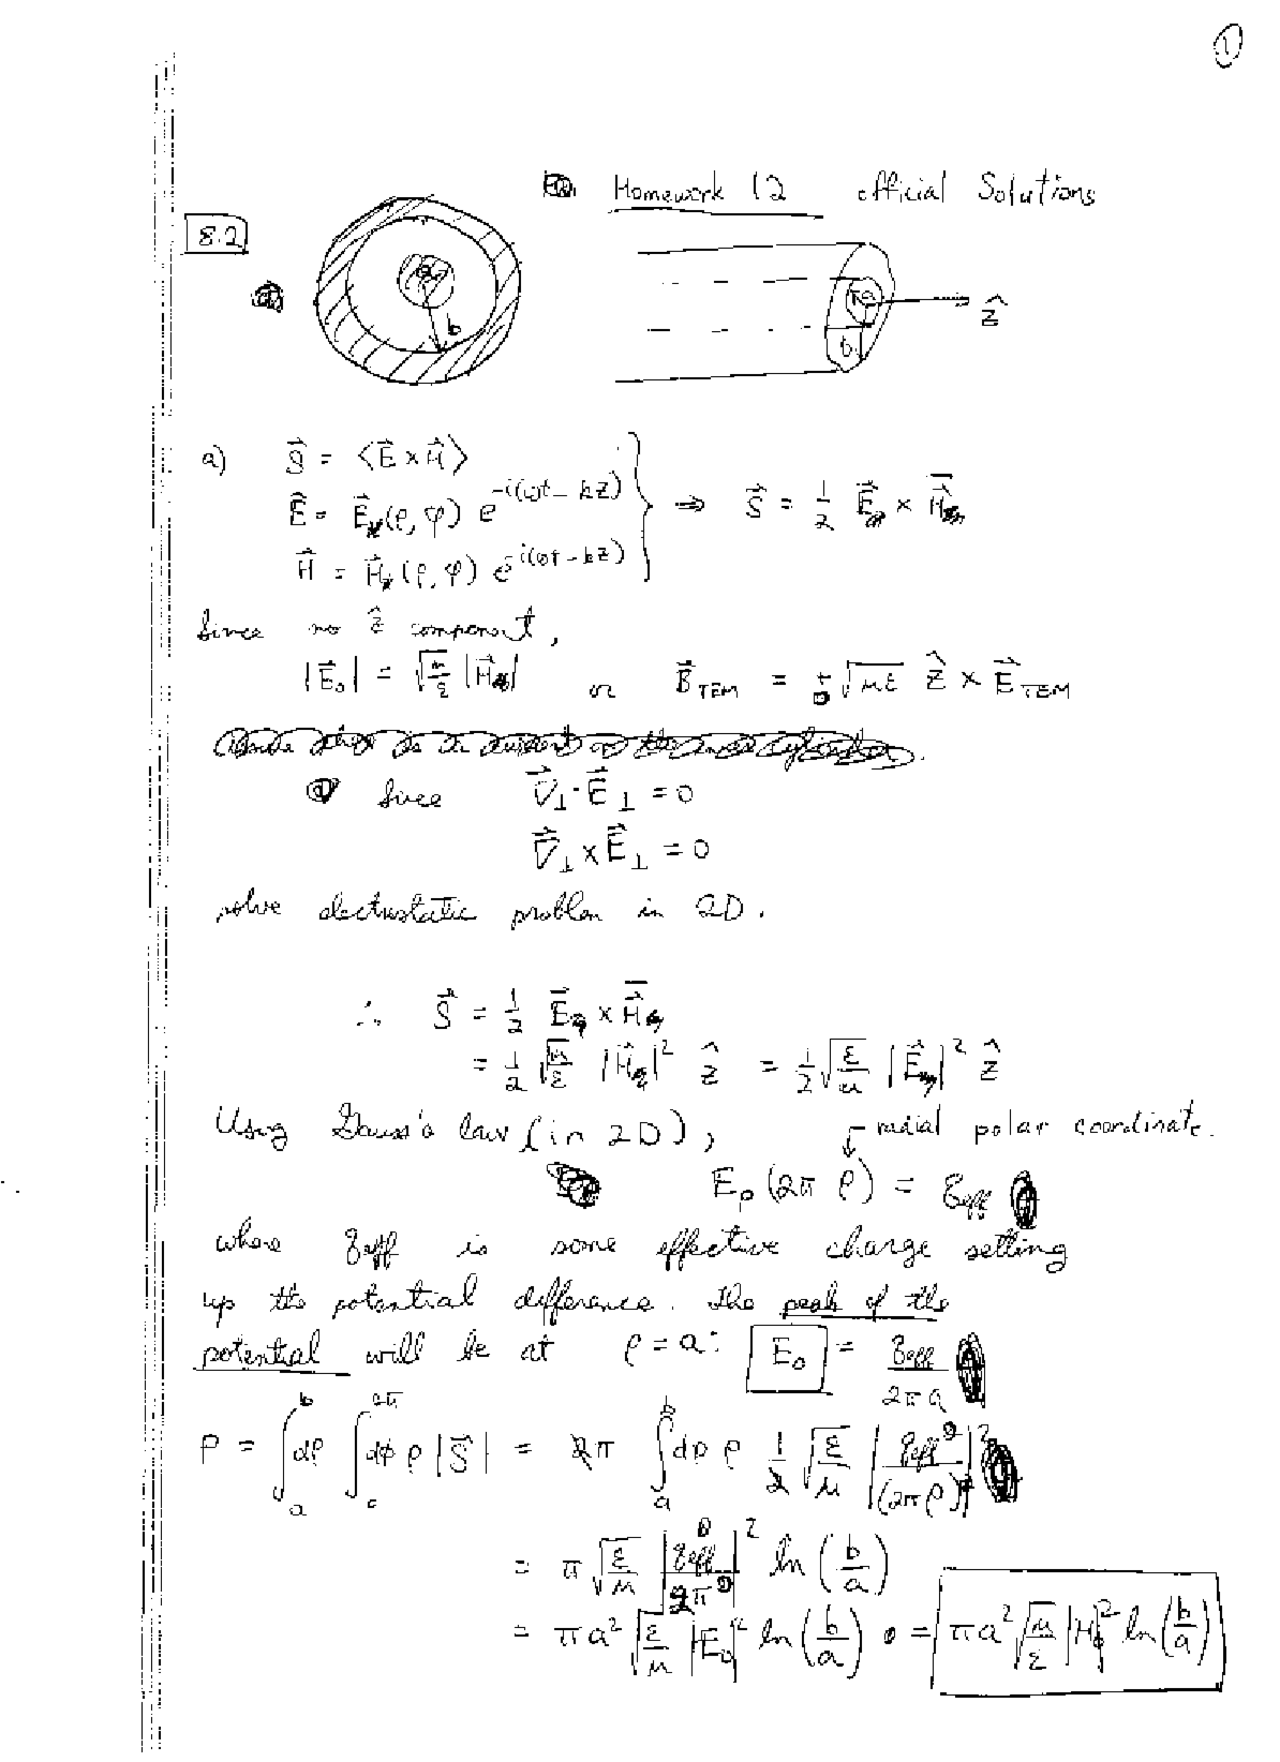 ①
Homework 12 official Solutions
8.2
a
b
a
b
ẑ
a) S⃗ = ⟨E⃗ × H⃗⟩
E⃗ = E⃗(ρ, φ) e^{-i(ωt - kz)} } ⇒ S⃗ = 1/2 E⃗ × H⃗
H⃗ = H⃗(ρ, φ) e^{-i(ωt - kz)}
Since no ẑ component,
|E⃗₀| = √(μ/ε) |H⃗| or B⃗_TEM = ± √(με) ẑ × E⃗_TEM
Since ∇⃗⊥ · E⃗⊥ = 0
∇⃗⊥ × E⃗⊥ = 0
solve electrostatic problem in 2D.
∴ S⃗ = 1/2 E⃗ × H⃗
= 1/2 √(μ/ε) |H⃗|² ẑ = 1/2 √(ε/μ) |E⃗|² ẑ
Using Gauss's law (in 2D), radial polar coordinate.
E_ρ (2π ρ) = q_eff
where q_eff is some effective charge setting
up the potential difference. The peak of the
potential will be at ρ = a: E₀ = q_eff / 2πa
P = ∫_a^b dρ ∫_0^{2π} dφ ρ |S⃗| = 2π ∫_a^b dρ ρ 1/2 √(ε/μ) |q_eff / (2πρ)|²
= π √(ε/μ) |q_eff / 2π|² ln(b/a)
= πa² √(ε/μ) |E₀|² ln(b/a) = πa² √(μ/ε) |H₀|² ln(b/a)